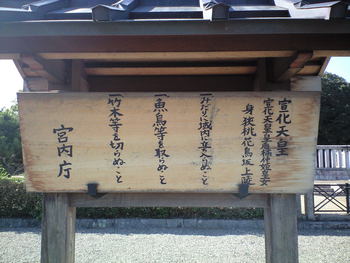 宣化天皇
宣化天皇皇后橘仲姫皇女
身狭桃花鳥坂上陵
一みだりに域内に立入らぬこと
一魚鳥等を取らぬこと
一竹木等を切らぬこと
宮内庁